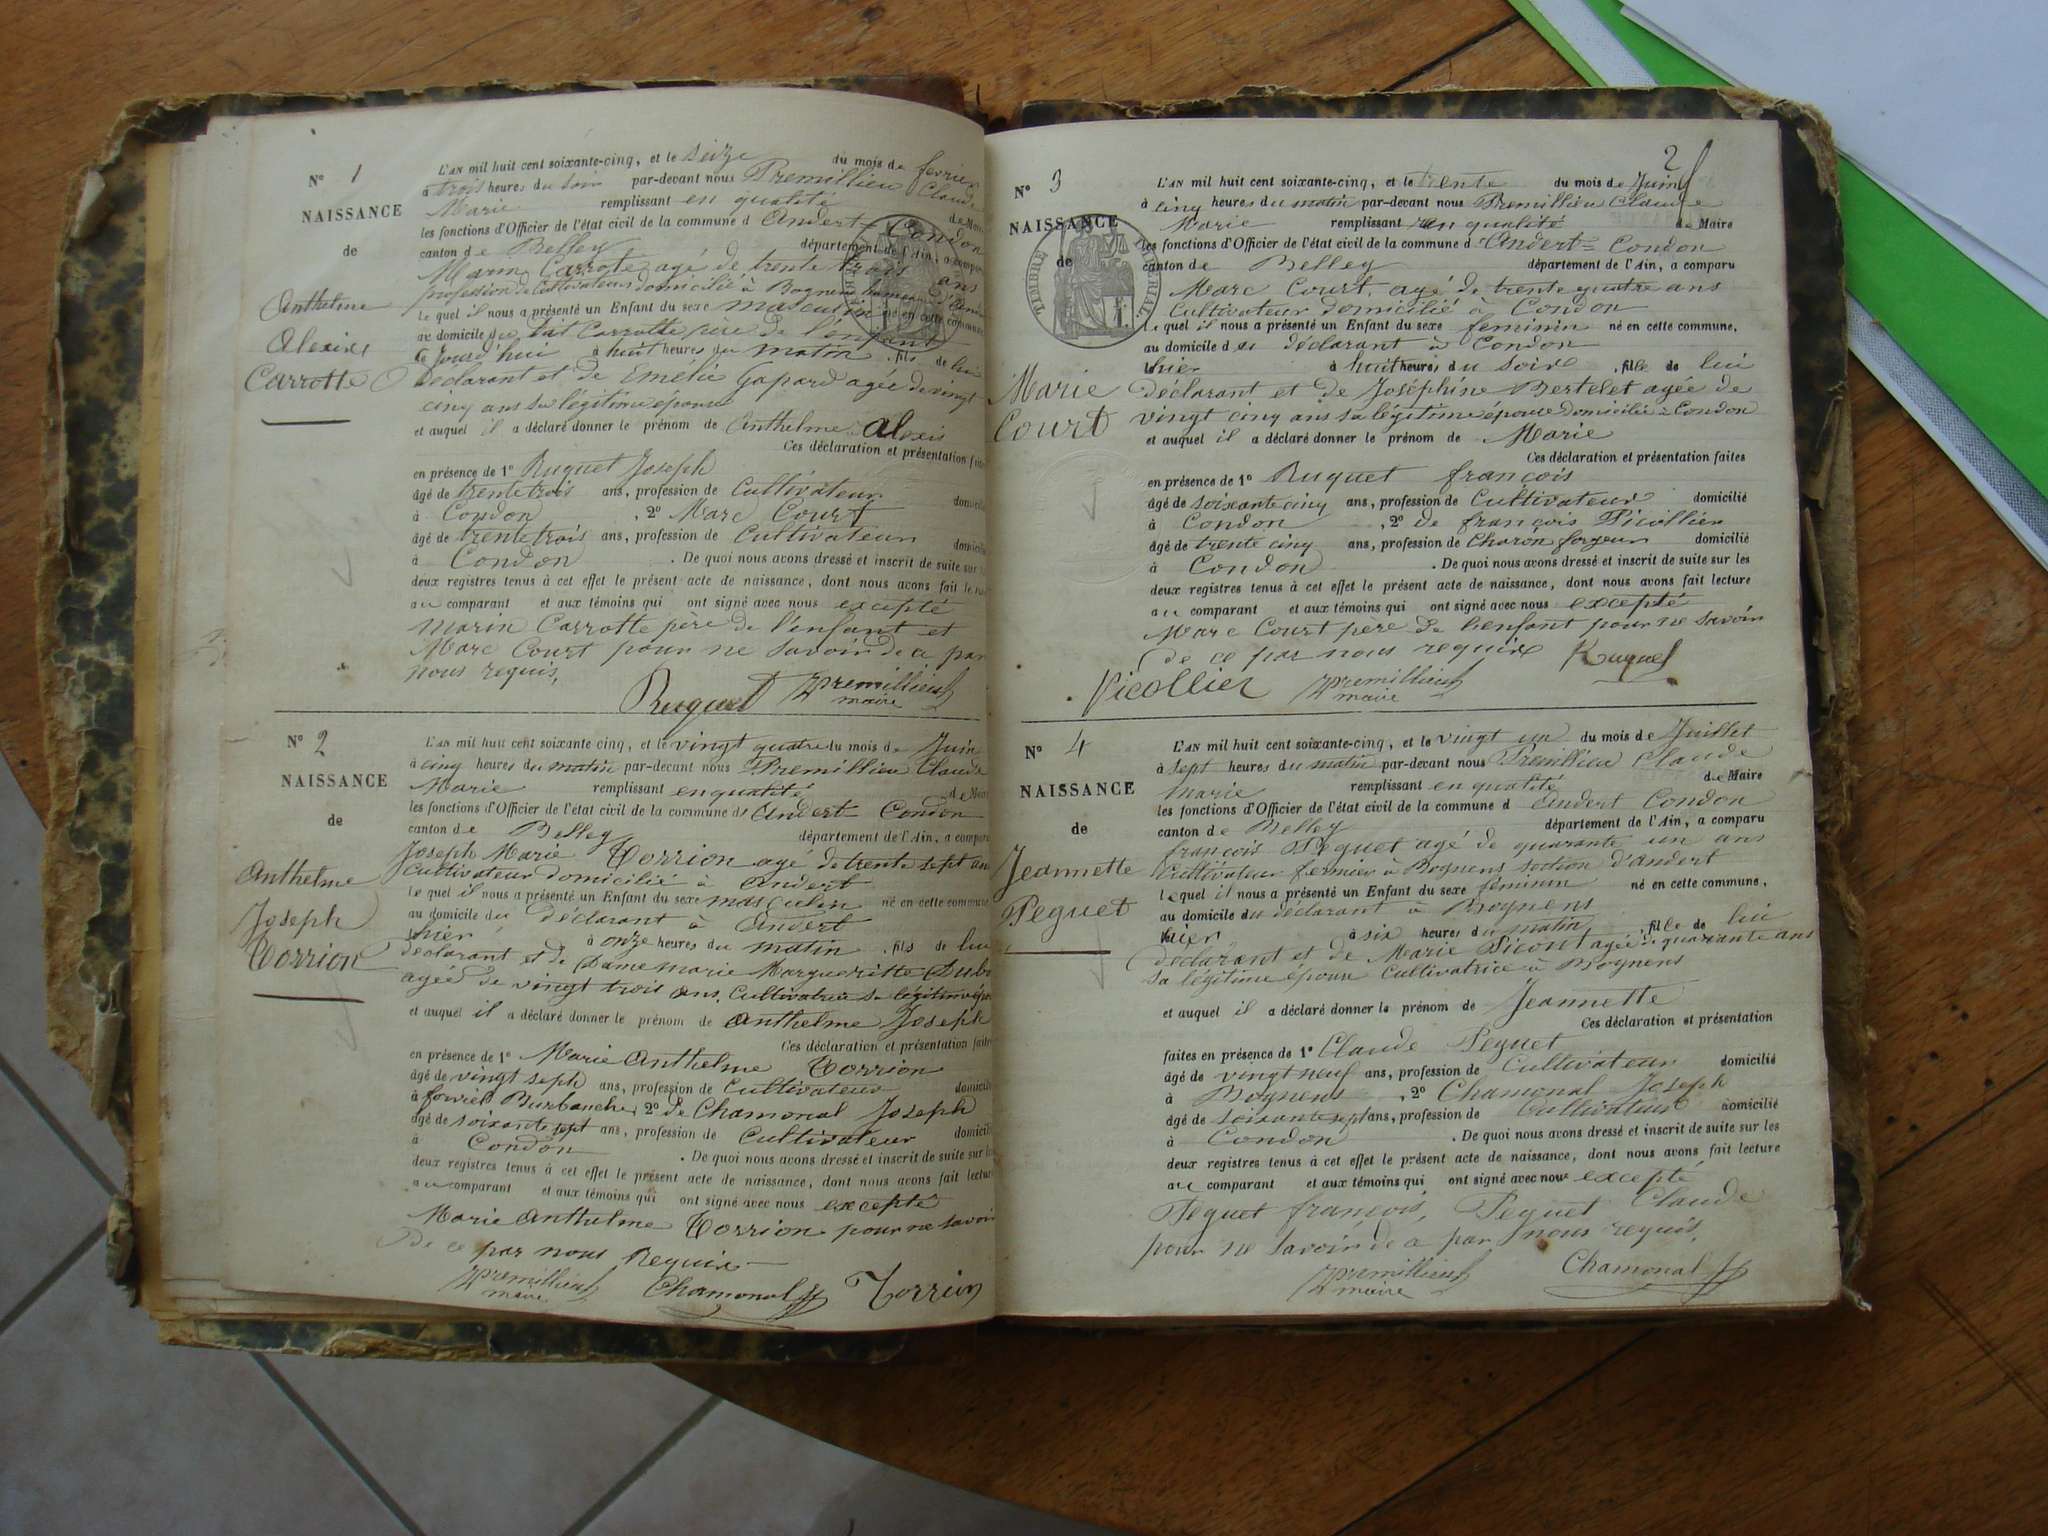 N° 1
NAISSANCE
de
Anthelme
Alexis
Carrotte
L'AN mil huit cent soixante-cinq, et le seize du mois de fevrier
à trois heures du soir par-devant nous Premillieu Claude
Marie remplissant en qualité de Maire
les fonctions d'Officier de l'état civil de la commune d Andert-Condon
canton de Belley département de l'Ain, a comparu
Marin Carrotte agé de trente trois ans
profession de Cultivateur domicilié à
Le quel il nous a présenté un Enfant du sexe masculin né en cette commune
au domicile du dit Carrotte père de l'enfant
Ce Jourd'hui à huit heures du matin, fils de lui
déclarant et de Emelie Gapard agée de vingt
cinq ans sa légitime epouse
et auquel il a déclaré donner le prénom de Anthelme Alexis
Ces déclaration et présentation faites
en présence de 1° Ruquet Joseph
âgé de trente trois ans, profession de Cultivateur domicilié
à Condon, 2° Marc Court
âgé de trente trois ans, profession de Cultivateur domicilié
à Condon. De quoi nous avons dressé et inscrit de suite sur
deux registres tenus à cet effet le présent acte de naissance, dont nous avons fait
au comparant et aux témoins qui ont signé avec nous excepté
Marin Carrotte père de l'enfant et
Marc Court pour ne savoir de ce par
nous requis,
Ruquet Premillieu
maire
N° 2
NAISSANCE
de
Anthelme
Joseph
Torrion
L'AN mil huit cent soixante cinq, et le vingt quatre du mois de Juin
à cinq heures du matin par-devant nous Premillieu Claude
Marie remplissant en qualité de Maire
les fonctions d'Officier de l'état civil de la commune d Andert Condon
canton de Belley département de l'Ain, a comparu
Joseph Marie Torrion agé de trente sept ans
Cultivateur domicilié à Andert
Le quel il nous a présenté un Enfant du sexe masculin né en cette commune
au domicile du Déclarant à Andert
hier à onze heures du matin, fils de lui
déclarant et de Dame Marie Margueritte
agée de vingt trois ans, Cultivatrice sa légitime
et auquel il a déclaré donner le prénom de Anthelme Joseph
Ces déclaration et présentation faites
en présence de 1° Marie Anthelme Torrion
âgé de vingt seph ans, profession de Cultivateur domicilié
à 2° de Chamonal Joseph
âgé de soixante sept ans, profession de Cultivateur domicilié
à Condon. De quoi nous avons dressé et inscrit de suite sur
deux registres tenus à cet effet le présent acte de naissance, dont nous avons fait lecture
au comparant et aux témoins qui ont signé avec nous excepté
Marie Anthelme Torrion pour ne savoir
De ce par nous Requis
Premillieu Chamonal Torrion
maire
2
N° 3
NAISSANCE
de
TIMBRE IMPERIAL
Marie
Court
L'AN mil huit cent soixante-cinq, et le trente du mois de Juin
à cinq heures du matin par-devant nous Premillieu Claude
Marie remplissant en qualité de Maire
les fonctions d'Officier de l'état civil de la commune d Andert-Condon
canton de Belley département de l'Ain, a comparu
Marc Court, agé de trente quatre ans
Cultivateur domicilié à Condon
Le quel il nous a présenté un Enfant du sexe feminin né en cette commune,
au domicile du déclarant à Condon
hier à huit heures du soire, fille de lui
déclarant et de Joséphine Bertelet agée de
vingt cinq ans sa légitime épouse domiciliée à Condon
et auquel il a déclaré donner le prénom de Marie
Ces déclaration et présentation faites
en présence de 1° Ruquet françois
âgé de soixante cinq ans, profession de Cultivateur domicilié
à Condon, 2° de françois Picollier
âgé de trente cinq ans, profession de Charon forgeur domicilié
à Condon. De quoi nous avons dressé et inscrit de suite sur les
deux registres tenus à cet effet le présent acte de naissance, dont nous avons fait lecture
au comparant et aux témoins qui ont signé avec nous excepté
Marc Court père de l'enfant pour ne savoir
de ce par nous requis Ruquet
Picollier Premillieu
maire
N° 4
NAISSANCE
de
Jeannette
Peguet
L'AN mil huit cent soixante-cinq, et le vingt un du mois de Juillet
à sept heures du matin par-devant nous Premillieu Claude
Marie remplissant en qualité de Maire
les fonctions d'Officier de l'état civil de la commune d Andert Condon
canton de Belley département de l'Ain, a comparu
françois Peguet agé de quarante un ans
Cultivateur fermier à Bognens section d'andert
Lequel il nous a présenté un Enfant du sexe féminin né en cette commune,
au domicile du déclarant à Bognens
hier à six heures du matin, fille de lui
déclarant et de Marie Picont agée de quarante ans
sa légitime épouse Cultivatrice à Bognens
et auquel il a déclaré donner le prénom de Jeannette
Ces déclaration et présentation
faites en présence de 1° Claude Peguet
âgé de vingt neuf ans, profession de Cultivateur domicilié
à Bognens, 2° Chamonal Joseph
âgé de soixante sept ans, profession de Cultivateur domicilié
à Condon. De quoi nous avons dressé et inscrit de suite sur les
deux registres tenus à cet effet le présent acte de naissance, dont nous avons fait lecture
au comparant et aux témoins qui ont signé avec nous excepté
Peguet françois, Peguet Claude
pour ne savoir de ce par nous requis,
Premillieu Chamonal
maire